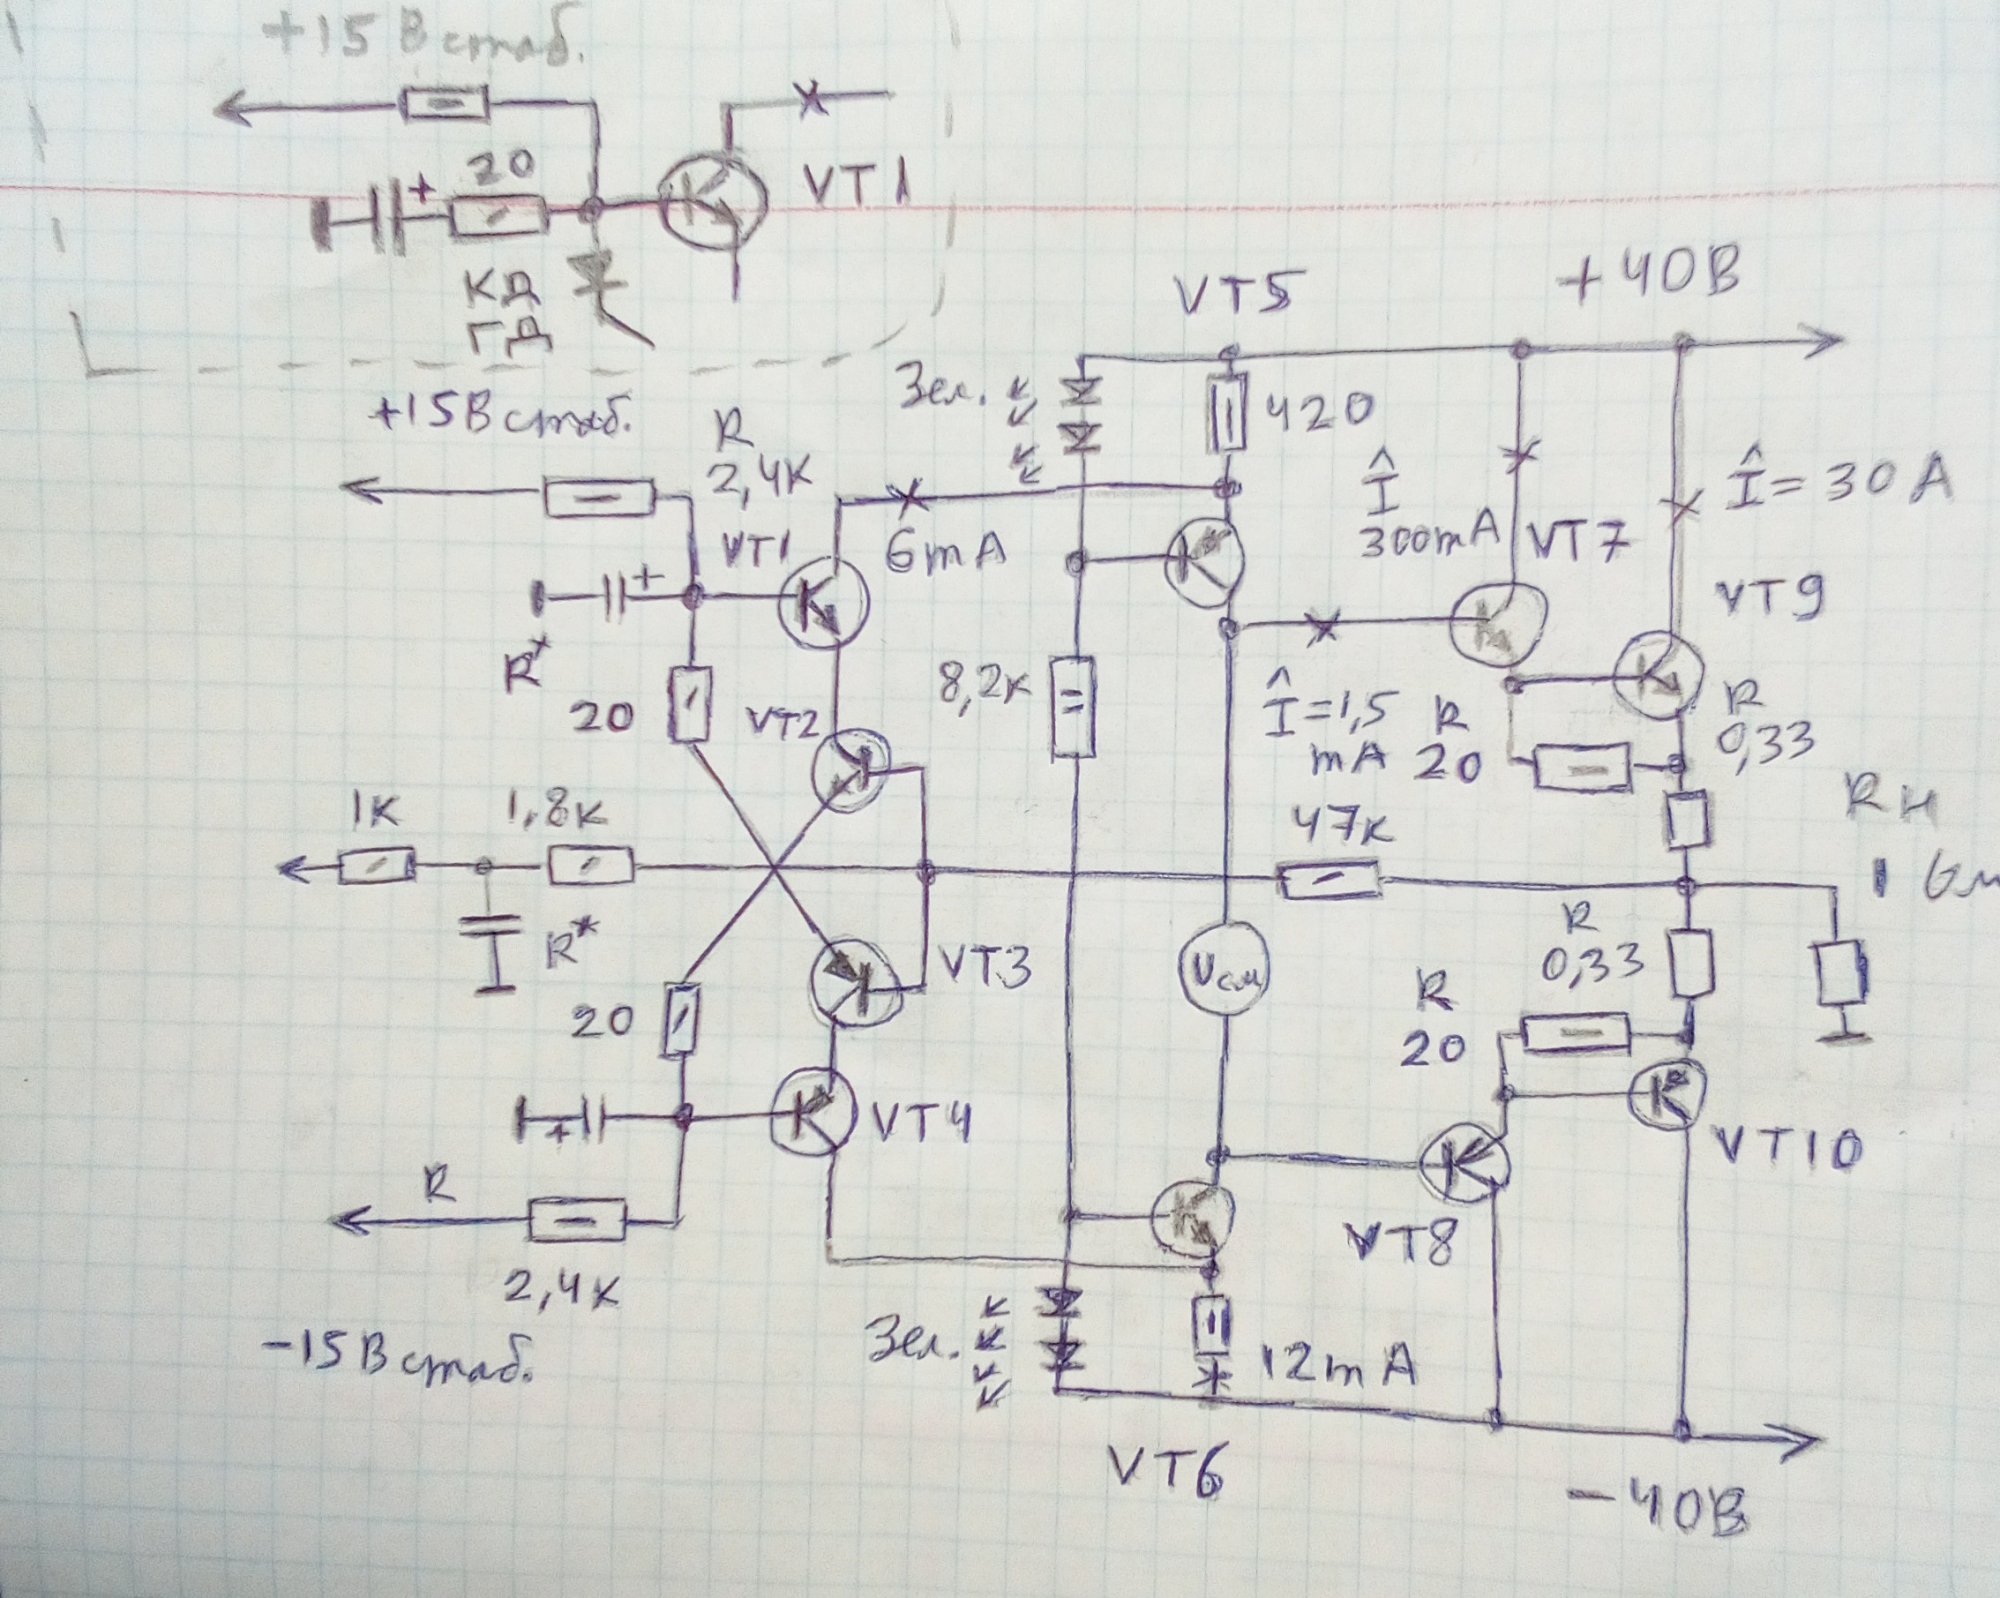 +15 В стаб.
20
VT1
КД
ГД
+40В
VT5
Зел.
420
+15 В стаб.
R
2,4к
VT1
6mA
Î
300mA
VT7
Î = 30 А
VT9
R*
20
VT2
8,2к
Î=1,5
mA
R
20
R
0,33
1к
1,8к
47к
Rн
1
R*
VT3
Uсм
R
0,33
20
R
20
VT4
VT10
R
VT8
2,4к
-15 В стаб.
Зел.
12mA
VT6
-40В